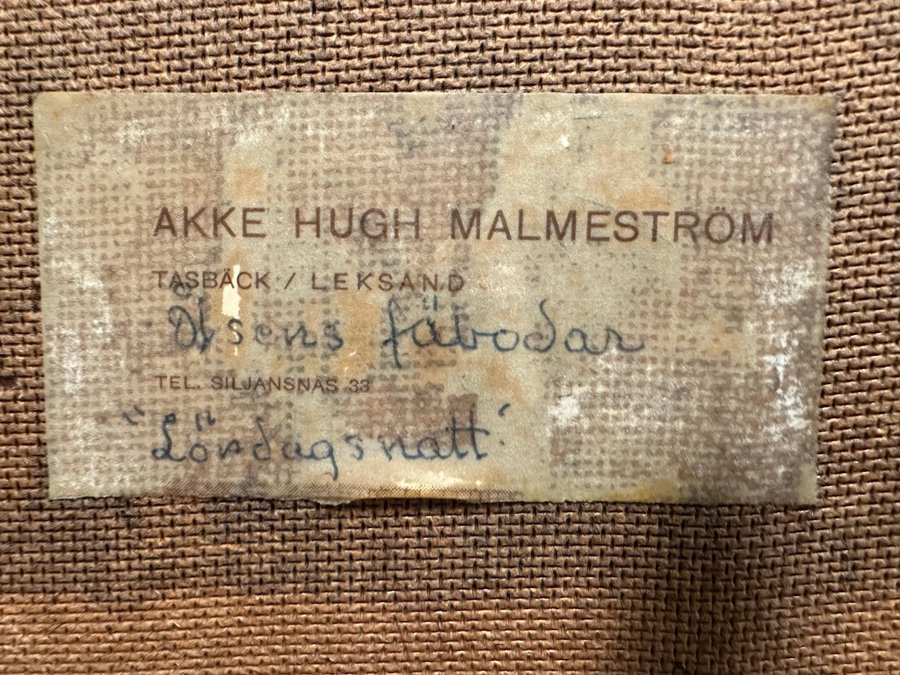 AKKE HUGH MALMESTRÖM
TASBÄCK / LEKSAND
Åsens fäbodar
TEL. SILJANSNÄS 33
"Lördagsnatt"